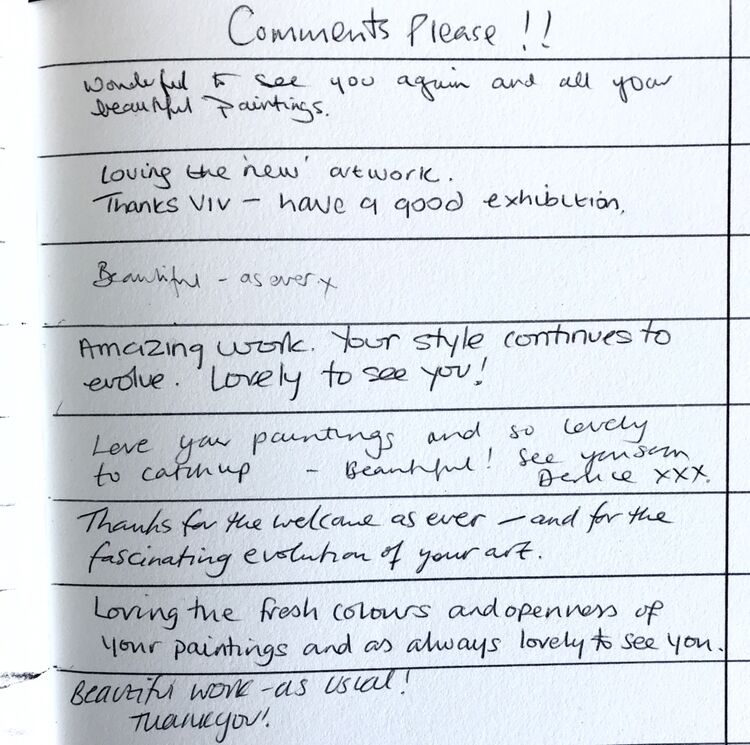 Comments Please !!
Wonderful to see you again and all your
beautiful Paintings.
Loving the 'new' artwork.
Thanks VIV - have a good exhibition.
Beautiful - as ever x
Amazing work. Your style continues to
evolve. Lovely to see you!
Love your paintings and so lovely
to catch up - Beautiful! See you soon
xxx.
Thanks for the welcome as ever - and for the
fascinating evolution of your art.
Loving the fresh colours and openness of
your paintings and as always lovely to see you.
Beautiful work - as usual!
Thankyou!